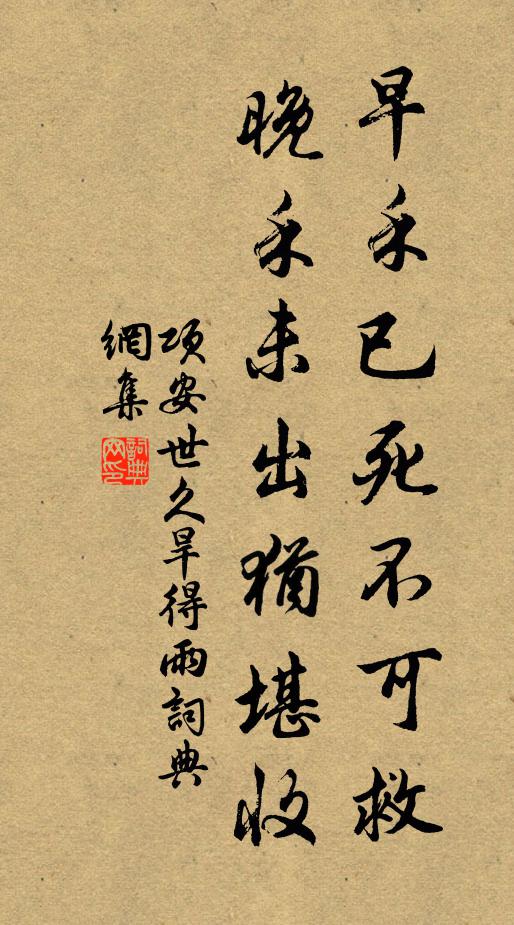 早禾已死不可救
晚禾未出猶堪收
項安世久旱得雨詞典
網集
詞典
网印